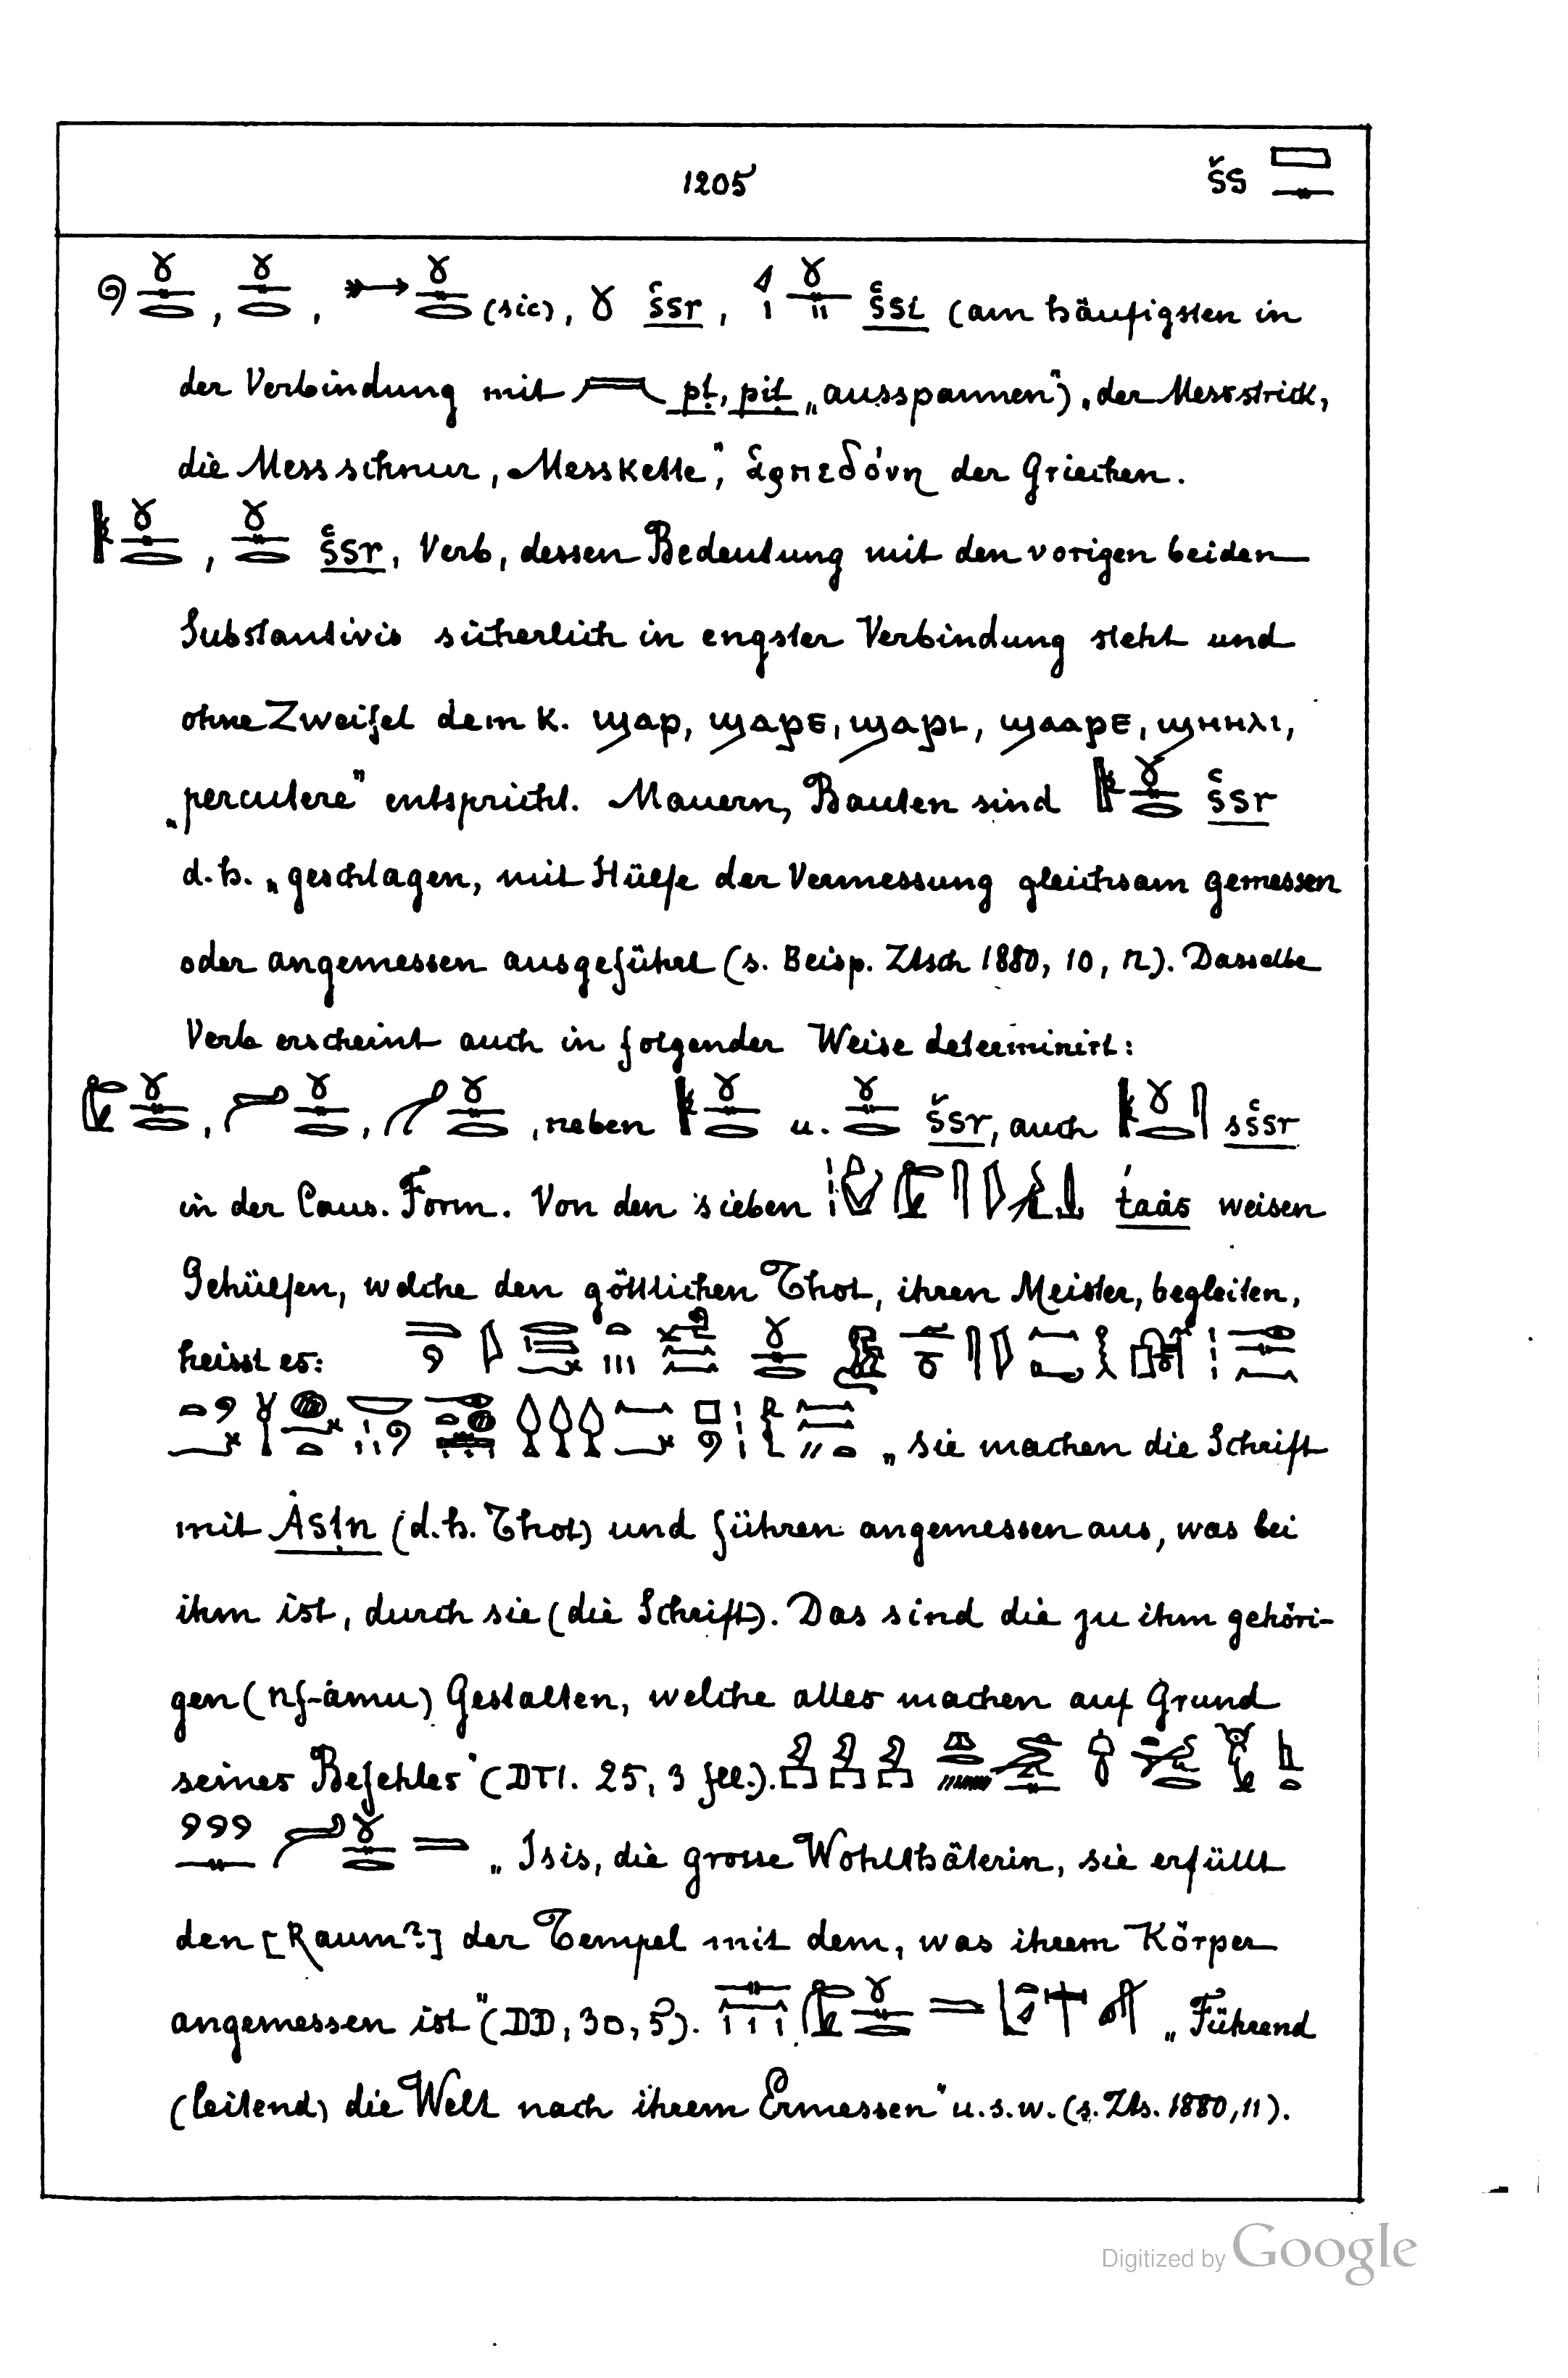 1205 šs
(sic), šsr, šst (am häufigsten in
der Verbindung mit pṭ, piṭ „ausspannen"), der Messstrick,
die Messschnur, „Messkette", ἁρπεδόνη der Griechen.
šsr, Verb, dessen Bedeutung mit den vorigen beiden
Substantivis sicherlich in engster Verbindung steht und
ohne Zweifel dem K. ϣαρ, ϣαρε, ϣαρι, ϣααρε, ϣηηλι,
„percutere" entspricht. Mauern, Bauten sind šsr
d.h. „geschlagen, mit Hülfe der Vermessung gleichsam gemessen
oder angemessen ausgeführt (s. Beisp. Ztsch 1880, 10, 12). Dasselbe
Verb erscheint auch in folgender Weise determinirt:
, neben u. šsr, auch sšsr
in der Caus. Form. Von den sieben ṭaȧs weisen
Gehülfen, welche den göttlichen Thot, ihren Meister, begleiten,
heisst es:
„sie machen die Schrift
mit Ȧsṭn (d.h. Thot) und führen angemessen aus, was bei
ihm ist, durch sie (die Schrift). Das sind die zu ihm gehöri-
gen (nf-ȧmu) Gestalten, welche alles machen auf Grund
seines Befehles" (DTI. 25, 3 fll.).
„Isis, die grosse Wohlthäterin, sie erfüllt
den [Raum?] der Tempel mit dem, was ihrem Körper
angemessen ist" (DD, 30, 5). „Führend
(leitend) die Welt nach ihrem Ermessen" u.s.w. (s. Zts. 1880, 11).
Digitized by Google